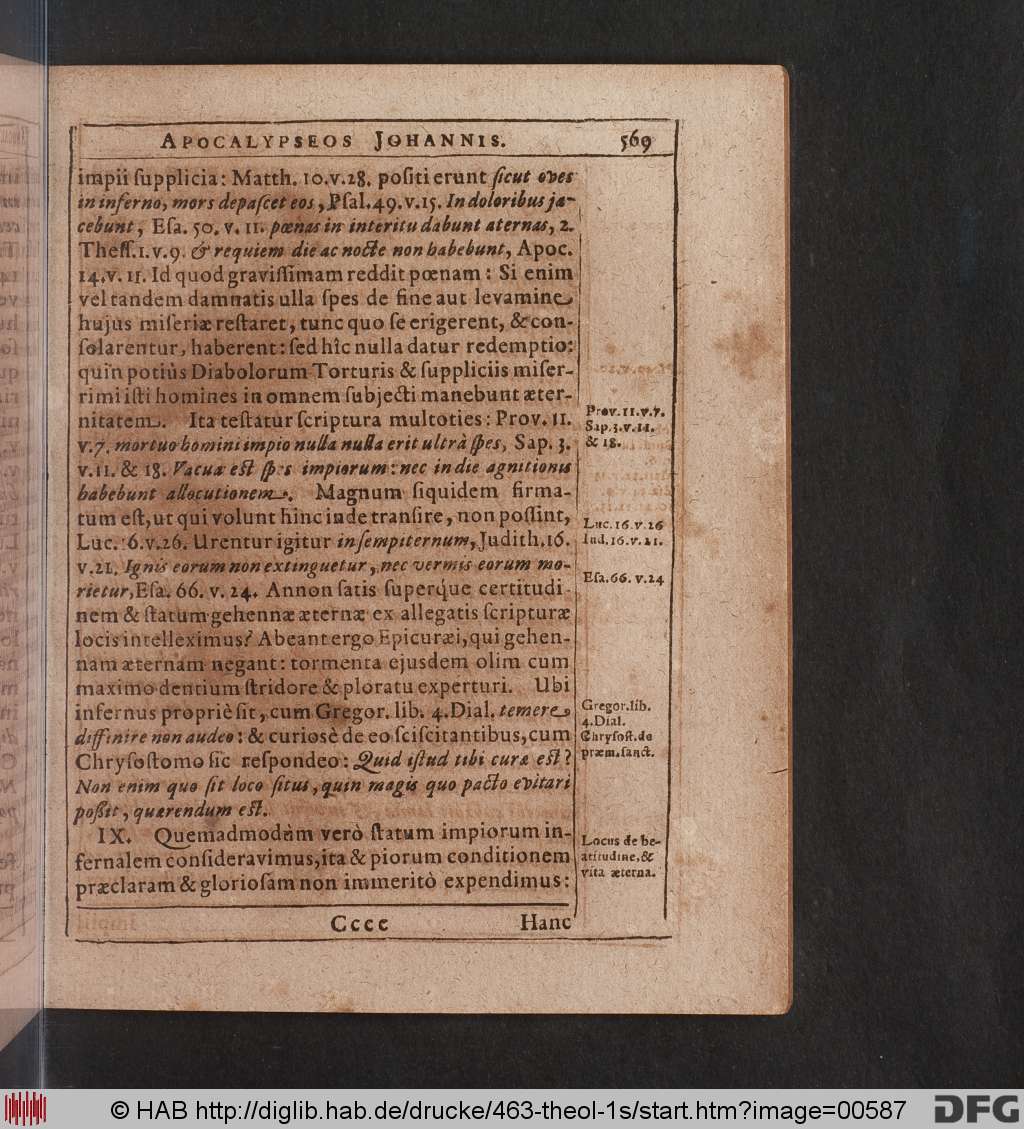 APOCALYPSEOS JOHANNIS. 569
impii ſupplicia: Matth. 10.v.28. poſiti erunt ſicut oves
in inferno, mors depaſcet eos, Pſal. 49.v.15. In doloribus ja-
cebunt, Eſa. 50. v. 11. pœnas in interitu dabunt æternas, 2.
Theſſ.1.v.9. & requiem die ac nocte non habebunt, Apoc.
14.v. 11. Id quod graviſſimam reddit pœnam: Si enim
vel tandem damnatis ulla ſpes de fine aut levamine
hujus miſeriæ reſtaret, tunc quo ſe erigerent, & con-
ſolarentur, haberent: ſed hîc nulla datur redemptio:
quin potiùs Diabolorum Torturis & ſuppliciis miſer-
rimi iſti homines in omnem ſubjecti manebunt æter-
nitatem. Ita teſtatur ſcriptura multoties: Prov. 11.
v.7. mortuo homini impio nulla nulla erit ultrà ſpes, Sap. 3.
v.11. & 18. Vacua eſt ſpes impiorum: nec in die agnitionis
habebunt allocutionem. Magnum ſiquidem firma-
tum eſt, ut qui volunt hinc inde tranſire, non poſſint,
Luc. 16.v.26. Urentur igitur in ſempiternum, Judith. 16.
v.21. Ignis eorum non extinguetur, nec vermis eorum mo-
rietur, Eſa. 66. v. 24. Annon ſatis ſuperq́ue certitudi-
nem & ſtatum gehennæ æternæ ex allegatis ſcripturæ
locis intelleximus? Abeant ergo Epicuræi, qui gehen-
nam æternam negant: tormenta ejusdem olim cum
maximo dentium ſtridore & ploratu experturi. Ubi
infernus propriè ſit, cum Gregor. lib. 4. Dial. temere
diffinire non audeo: & curiosè de eo ſciſcitantibus, cum
Chryſoſtomo ſic reſpondeo: Quid iſtud tibi curæ eſt?
Non enim quo ſit loco ſitus, quin magis quo pacto evitari
poſſit, quærendum eſt.
IX. Quemadmodùm verò ſtatum impiorum in-
fernalem conſideravimus, ita & piorum conditionem
præclaram & glorioſam non immeritò expendimus:
Cccc Hanc
Prov. 11.v.7.
Sap.3.v.11.
& 18.
Luc.16.v.26
Iud.16.v.21.
Eſa.66. v.24
Gregor.lib.
4.Dial.
Chryſoſt.de
præm.ſanct.
Locus de be-
atitudine, &
vita æterna.
© HAB http://diglib.hab.de/drucke/463-theol-1s/start.htm?image=00587
DFG